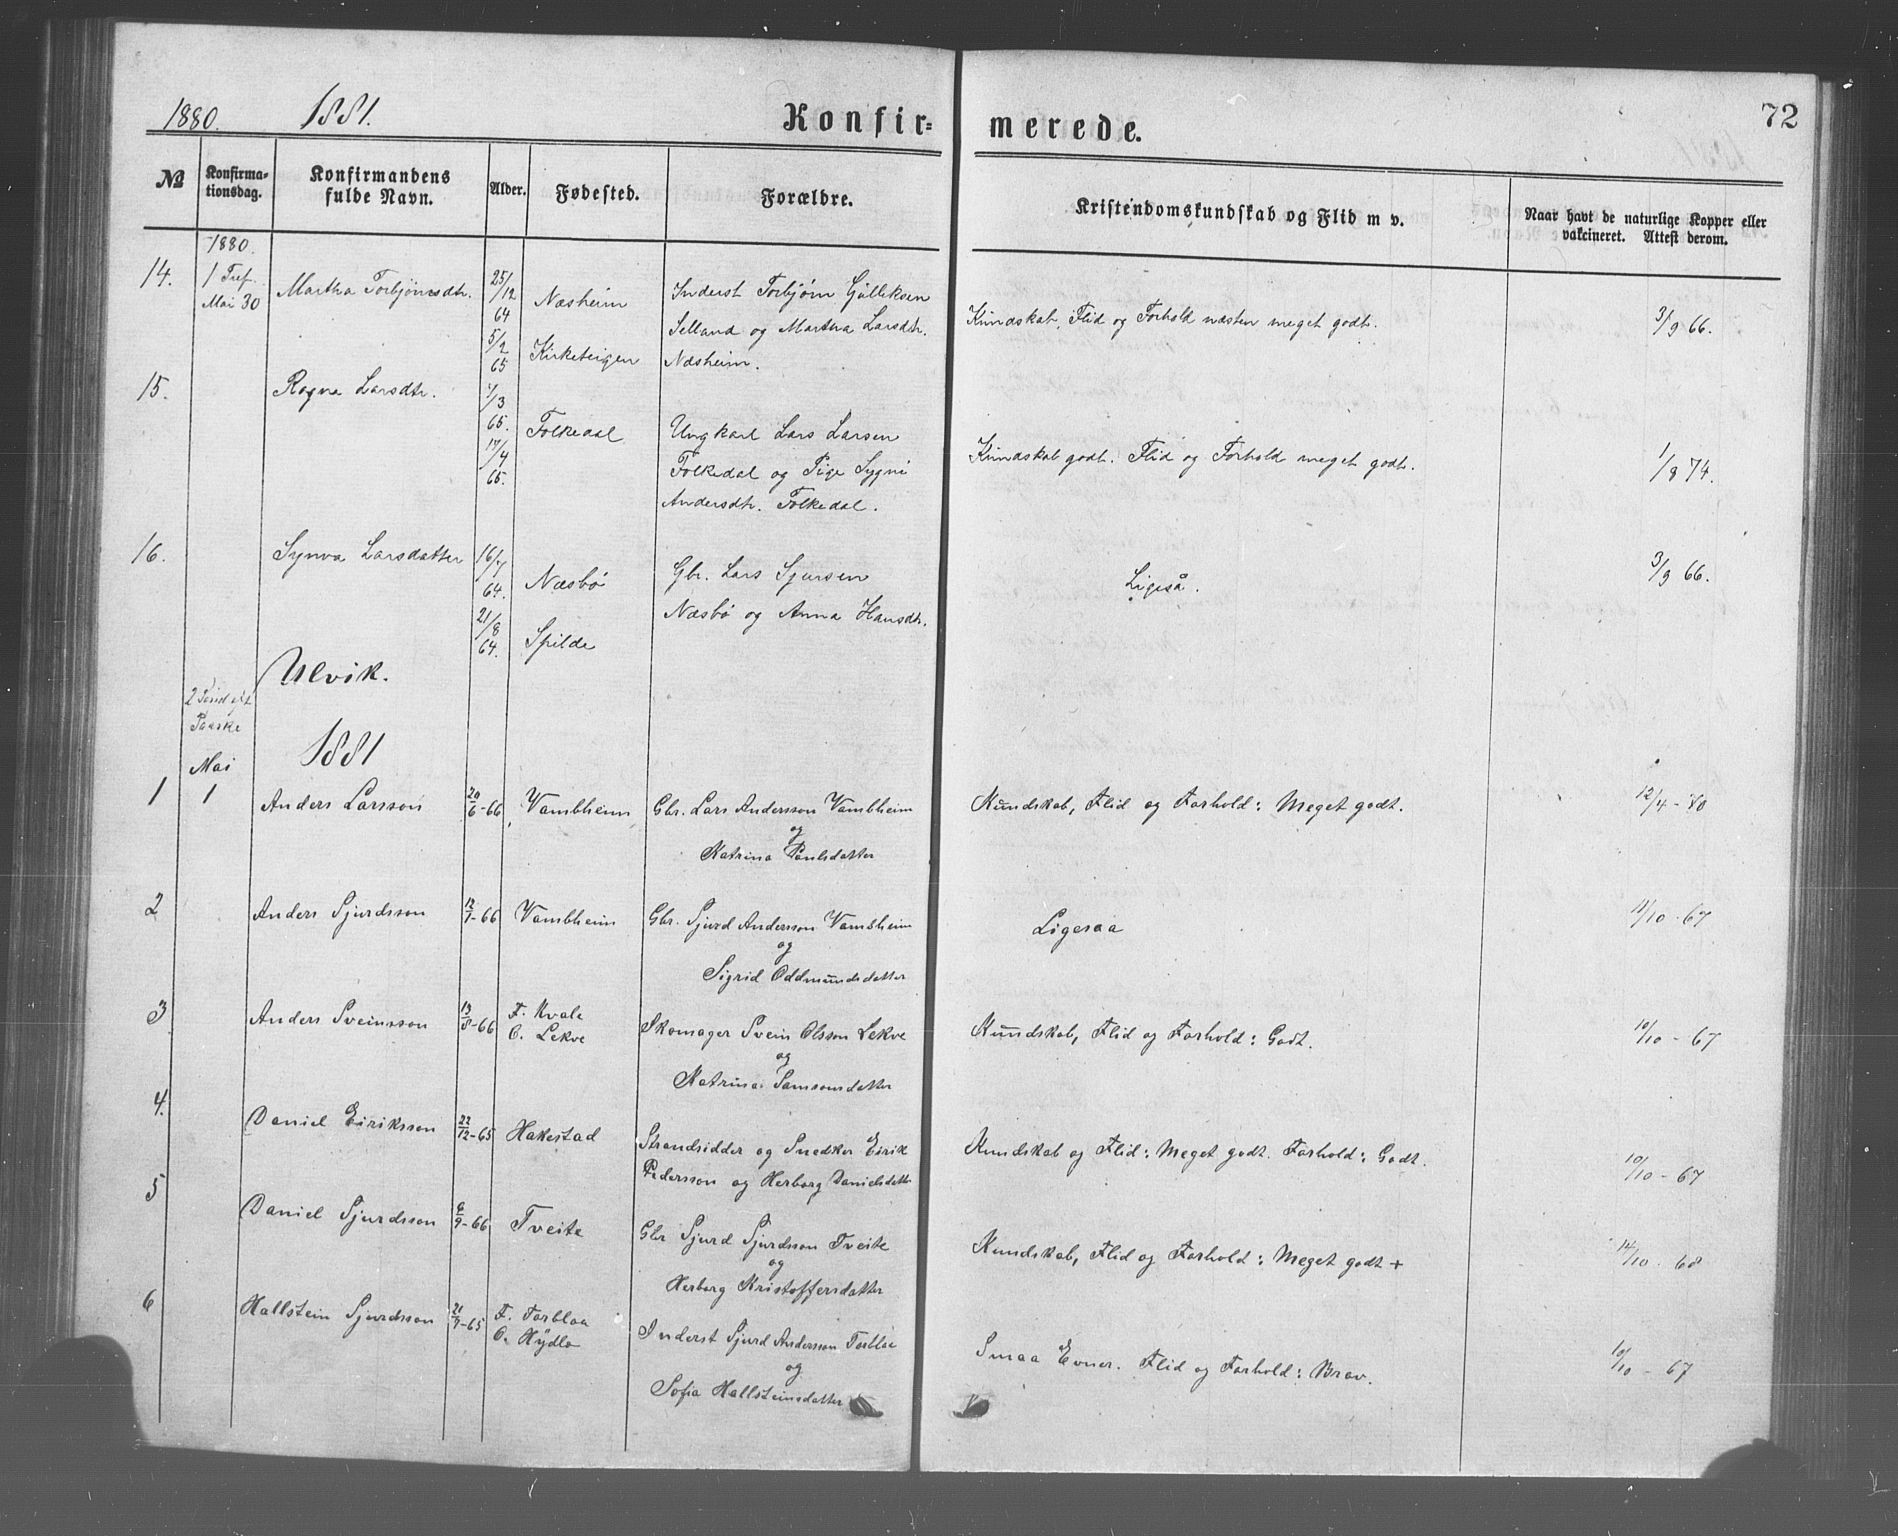 1880. 1881. Konfir= merede. 72
№ Konfirma=tionsdag. Konfirmandens fulde Navn. Alder. Fødested. Forældre. Kristendomskundskab og Flid m v. Naar havt de naturlige Kopper eller vakcineret. Attest derom.
1880.
14. Mai 30 Martha Torbjørnsdtr. 25/12 64 Næsheim Inderst Torbjørn Gulliksen
Selland og Martha Larsdtr. Kundskab, Flid og Forhold næsten meget godt. 3/9 66.
5/2 65 Kirketeigen Næsheim.
15. Ragna Larsdtr. 1/3 65. Folkedal Ungkarl Lars Larsen
17/4 65. Folkedal og Pige Sygni Kundskab godt. Flid og Forhold meget godt. 1/8 74.
Andersdtr. Folkedal.
16. Synva Larsdatter 16/7 64. Næsbø Gbr. Lars Sjursen Ligeså. 3/9 66.
21/8 64. Spilde Næsbø og Anna Hansdtr.
Ulvik.
Paaske
1881
Mai
1 1 Anders Larsson 6-66 Vambheim Gbr. Lars Andersson Vambheim Kundskab, Flid og Forhold: Meget godt. 12/4-80
og
Katrina Paulsdatter
2 Anders Sjurdsson 12/1-66 Vambheim Gbr. Sjurd Andersson Vambheim Ligesaa 11/10-67
og
Sigrid Oddmundsdatter
3 Anders Sveinsson 13/8-66 F. Kvale
O. Lekve Skomager Svein Olsson Lekve Kundskab, Flid og Forhold: Godt. 10/10-67
og
Katrina Samsonsdatter
4. Daniel Eiriksson 22/12-65 Hakestad Strandsidder og Snedker Eirik Kundskab og Flid: Meget godt. Forhold: Godt. 10/10-67
Pedersson og Herborg Danielsdatter
5 Daniel Sjurdsson 6/9-66 Tveite Gbr Sjurd Sjurdsson Tveite Kundskab, Flid og Forhold: Meget godt + 14/10-68
og
Herborg Kristoffersdatter
6 Hallstein Sjurdsson 21/9-65 F. Torblaa
O. Hydlo Inderst Sjurd Andersson Torblaa Smaa Evner. Flid og Forhold: Brav. 10/10-67
og
Sofia Hallsteinsdatter